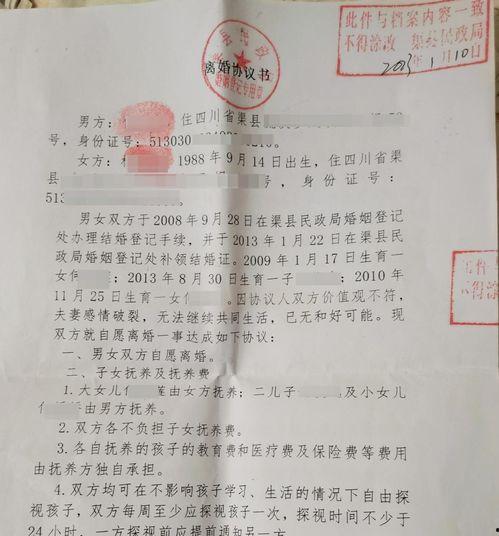 此件与档案内容一致
不得涂改 渠县民政局
2023年1月10日
离婚协议书
婚姻登记专用章
男方: 住四川省渠县
号,身份证号:513030
女方: 1988年9月14日出生,住四川省渠
县 号,身份证号:
513
男女双方于2008年9月28日在渠县民政局婚姻登记
处办理结婚登记手续,并于2013年1月22日在渠县民
政局婚姻登记处补领结婚证。2009年1月17日生育一
女 ;2013年8月30日生育一子 ;2010年
11月25日生育一女 。因协议人双方价值观不符,
夫妻感情破裂,无法继续共同生活,已无和好可能。现
双方就自愿离婚一事达成如下协议:
一、男女双方自愿离婚。
二、子女抚养及抚养费
1.大女儿 莲由女方抚养;二儿子 及小女儿
由男方抚养。
2.双方各不负担子女抚养费。
3.各自抚养的孩子的教育费和医疗费及保险费等费用
由抚养方独自承担。
4.双方均可在不影响孩子学习、生活的情况下自由探
视孩子,双方每周至少应探视孩子一次,探视时间不少于
24小时,一方探视前应提前通知另一方。